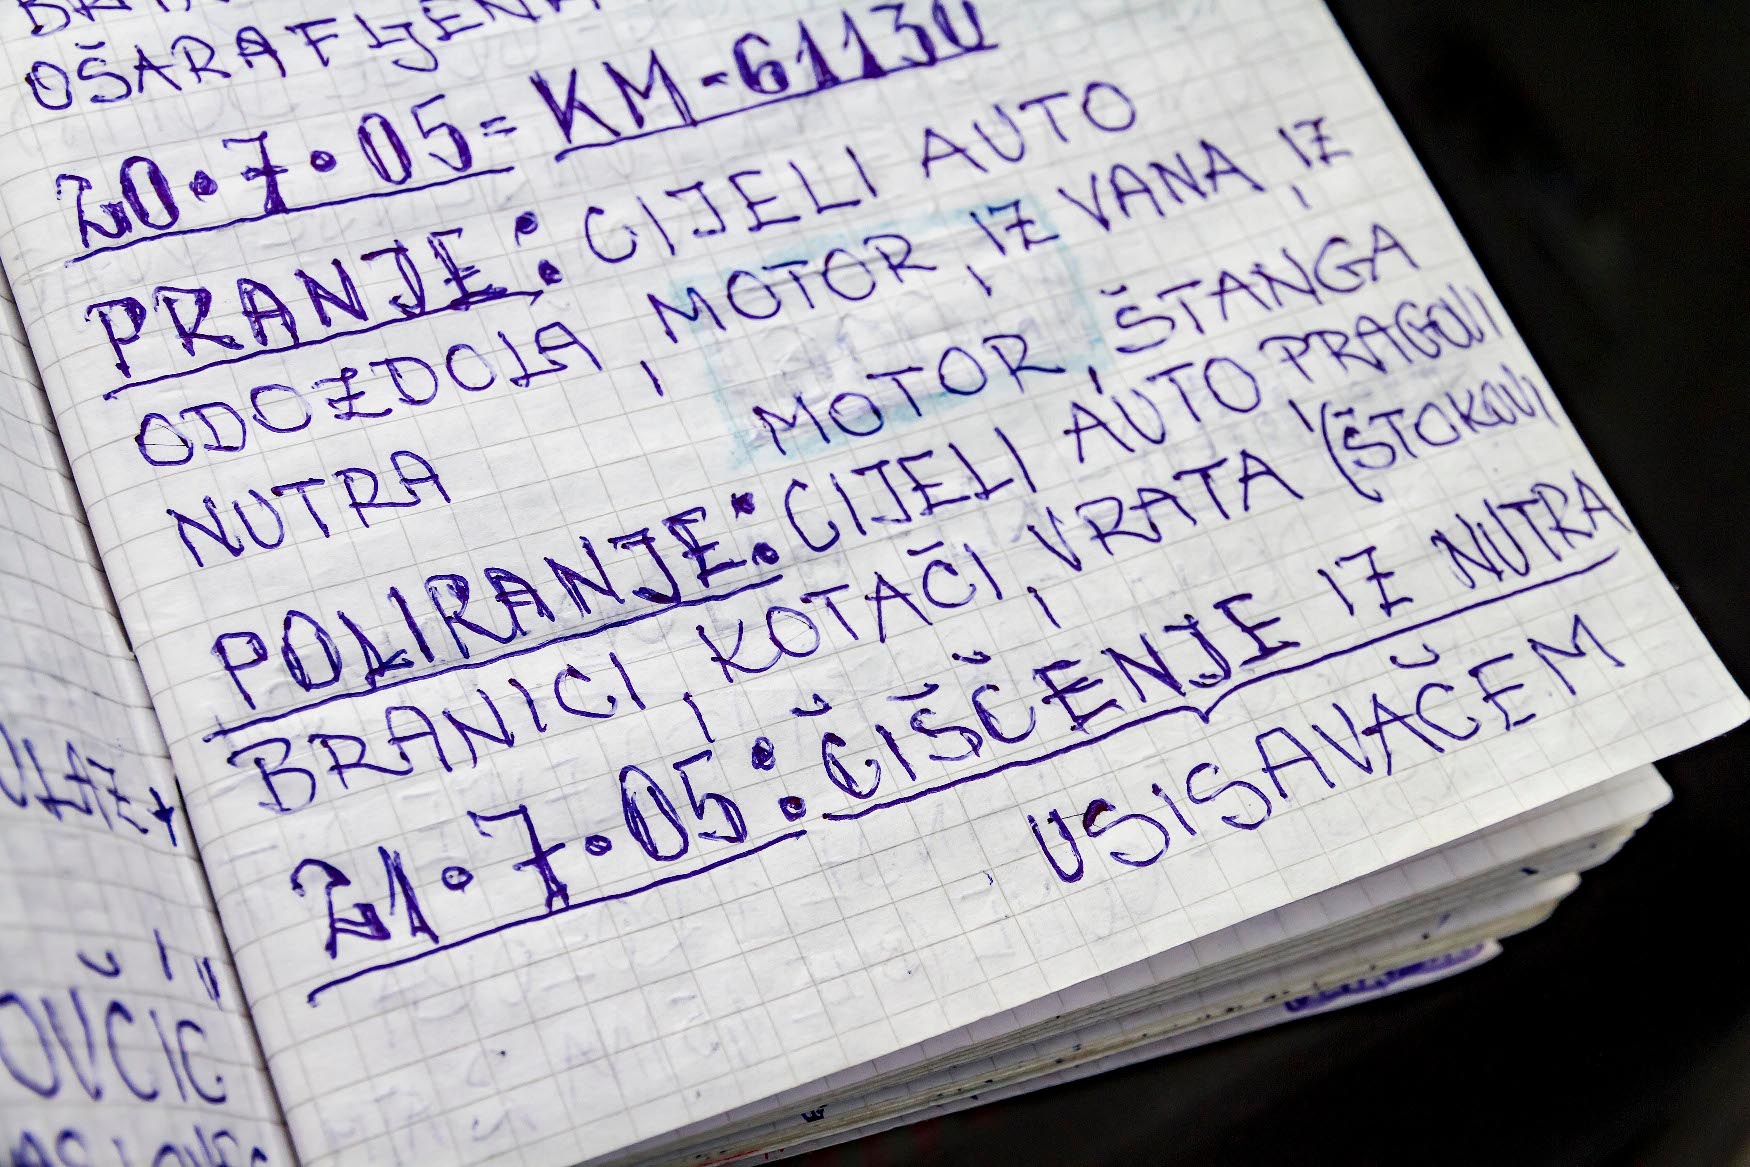 OŠARAFLJENA
20.7.05= KM-61130
PRANJE: CIJELI AUTO
ODOZDOLA, MOTOR, IZ VANA, IZ
NUTRA MOTOR, ŠTANGA
POLIRANJE: CIJELI AUTO, PRAGOVI
BRANICI, KOTAČI, VRATA (ŠTOKOVI
21.7.05: ČIŠĆENJE IZ NUTRA
USISAVAČEM
ULAZ
OVČIC